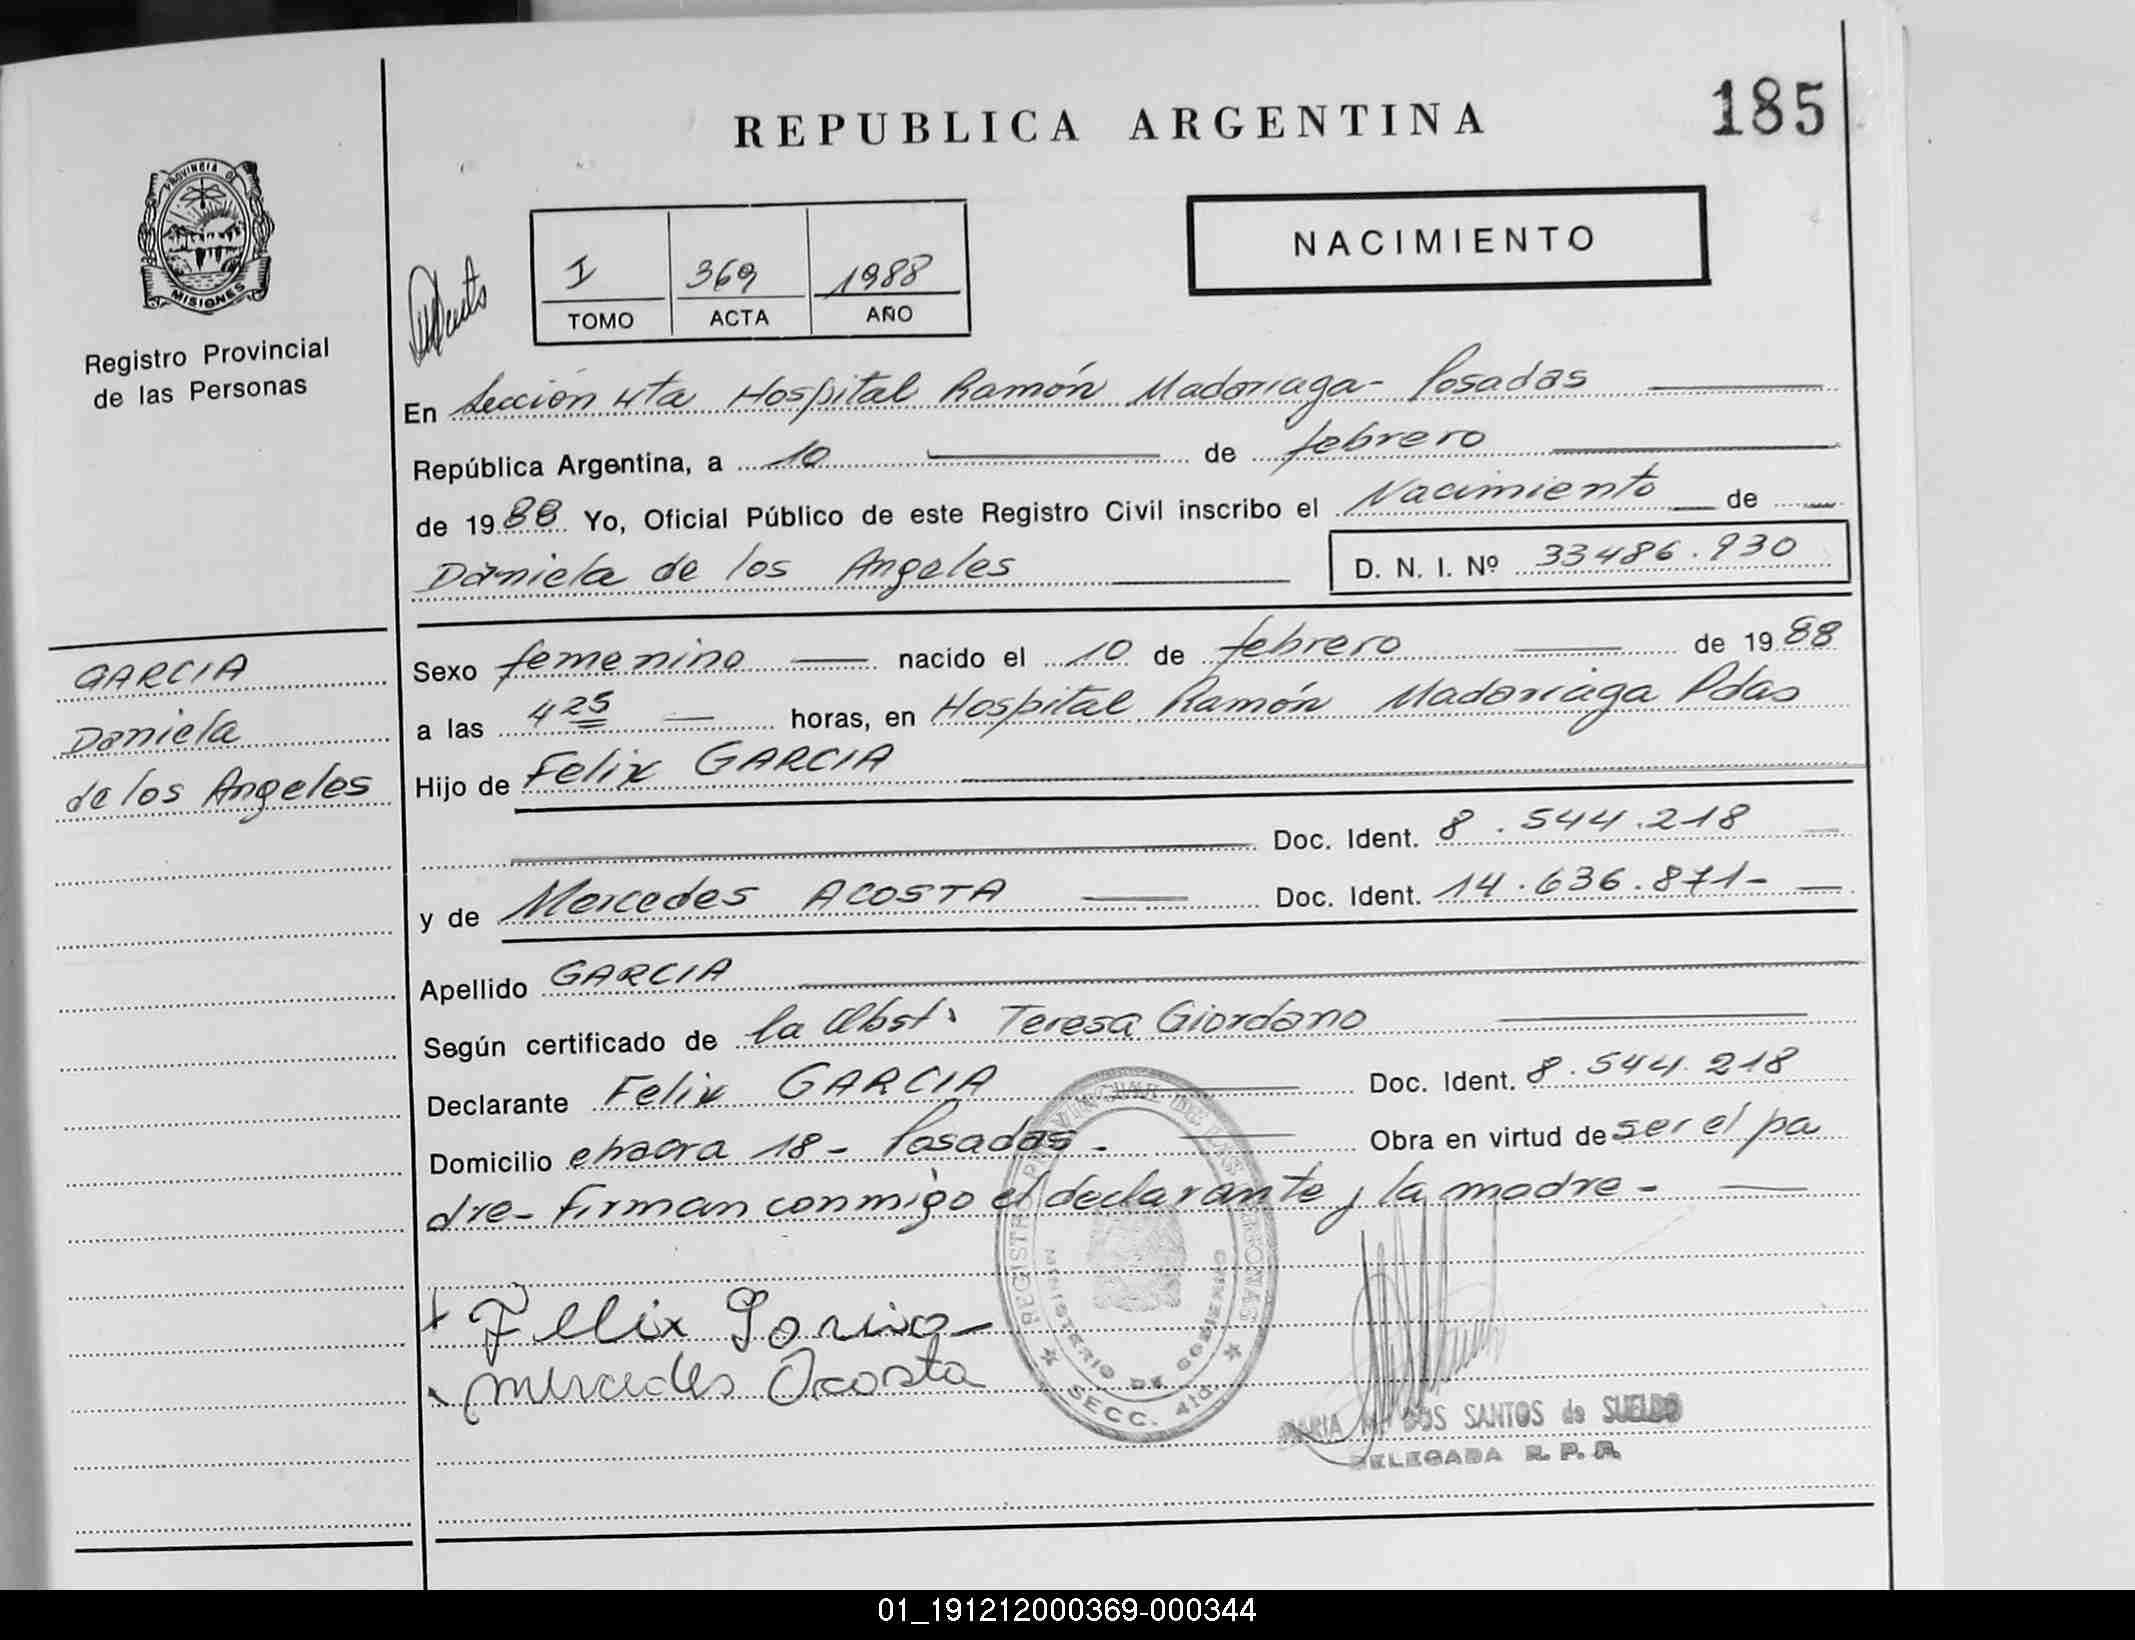 REPUBLICA ARGENTINA
185
PROVINCIA DE
MISIONES
Registro Provincial
de las Personas
NACIMIENTO
I 369 1988
TOMO ACTA AÑO
En Sección 4ta Hospital Ramón Madariaga - Posadas
República Argentina, a 10 de febrero
de 1988 Yo, Oficial Público de este Registro Civil inscribo el Nacimiento de
Daniela de los Angeles D. N. I. Nº 33486.930
GARCIA
Daniela
de los Angeles
Sexo femenino nacido el 10 de febrero de 1988
a las 4 25 horas, en Hospital Ramón Madariaga Pdas
Hijo de Felix GARCIA
Doc. Ident. 8.544.218
y de Mercedes ACOSTA Doc. Ident. 14.636.871-
Apellido GARCIA
Según certificado de la Obst. Teresa Giordano
Declarante Felix GARCIA Doc. Ident. 8.544.218
Domicilio chacra 18 - Posadas - Obra en virtud de ser el pa
dre - firman conmigo el declarante y la madre -
Felix Garcia
mercedes Acosta
REGISTRO PROVINCIAL DE LAS PERSONAS
MINISTERIO DE GOBIERNO
SECC. 4ta.
MARIA DOS SANTOS de SUELDO
DELEGADA R. P. P.
01_191212000369-000344